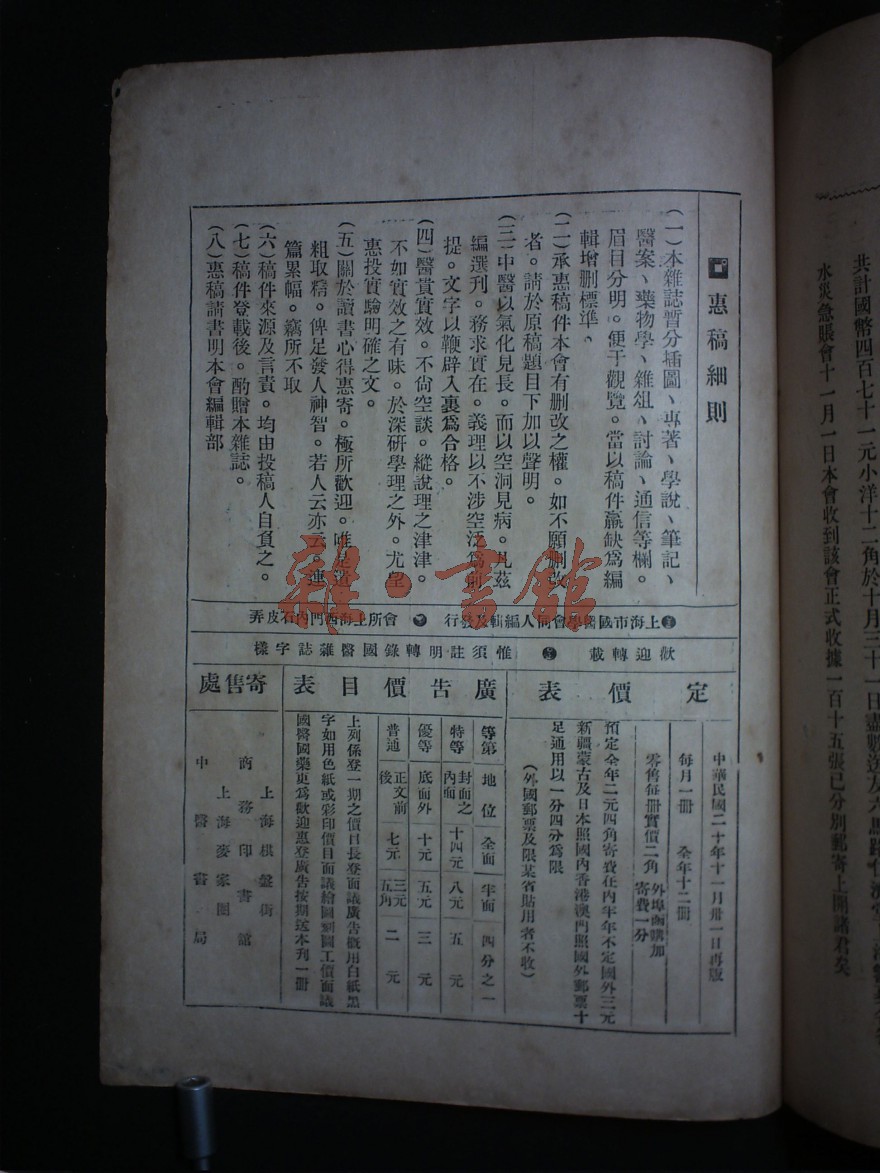 惠稿細則
(一)本雜誌暫分插圖、專著、學說、筆記、
醫案、藥物學、雜俎、討論、通信等欄。
眉目分明。便于觀覽。當以稿件贏缺爲編
輯增删標準、
(二)承惠稿件本會有删改之權。如不願删改
者。請於原稿題目下加以聲明。
(三)中醫以氣化見長。而以空洞見病。凡茲
編選刊。務求實在。義理以不涉空泛爲前
提。文字以鞭辟入裏爲合格。
(四)醫貴實效。不尙空談。縱說理之津津。
不如實效之有味。於深研學理之外。尤望
惠投實驗明確之文。
(五)關於讀書心得惠寄。極所歡迎。唯是遺
粗取精。俾足發人神智。若人云亦云。連
篇累幅。竊所不取
(六)稿件來源及言責。均由投稿人自負之。
(七)稿件登載後。酌贈本雜誌。
(八)惠稿請書明本會編輯部
上海市國醫學會同人編輯及發行
會所上海西門內石皮弄
歡迎轉載
惟須註明轉錄國醫雜誌字樣
定價表
中華民國二十年十一月卅一日再版
每月一册 全年十二册
零售每册實價二角
外埠函購加
寄費一分
預定全年二元四角寄費在內半年不定國外三元
新疆蒙古及日本照國內香港澳門照國外郵票十
足通用以一分四分爲限
(外國郵票及限某省貼用者不收)
廣告價目表
等第 地位 全面 半面 四分之一
特等 封面之內面 十四元 八元 五元
優等 底面外 十元 五元 三元
普通 正文前後 七元 三元五角 二元
上列係登一期之價目長登面議廣告概用白紙黑
字如用色紙或彩印價目面議繪圖刻圖工價面議
國醫國藥更爲歡迎惠登廣告按期送本刊一册
寄售處
上海棋盤街
商務印書館
上海麥家圈
中醫書局
共計國幣四百七十一元小洋十二角於十月三十一日
水災急賑會十一月一日本會收到該會正式收據一百十五張已分別郵寄上開諸君矣
雜·書館